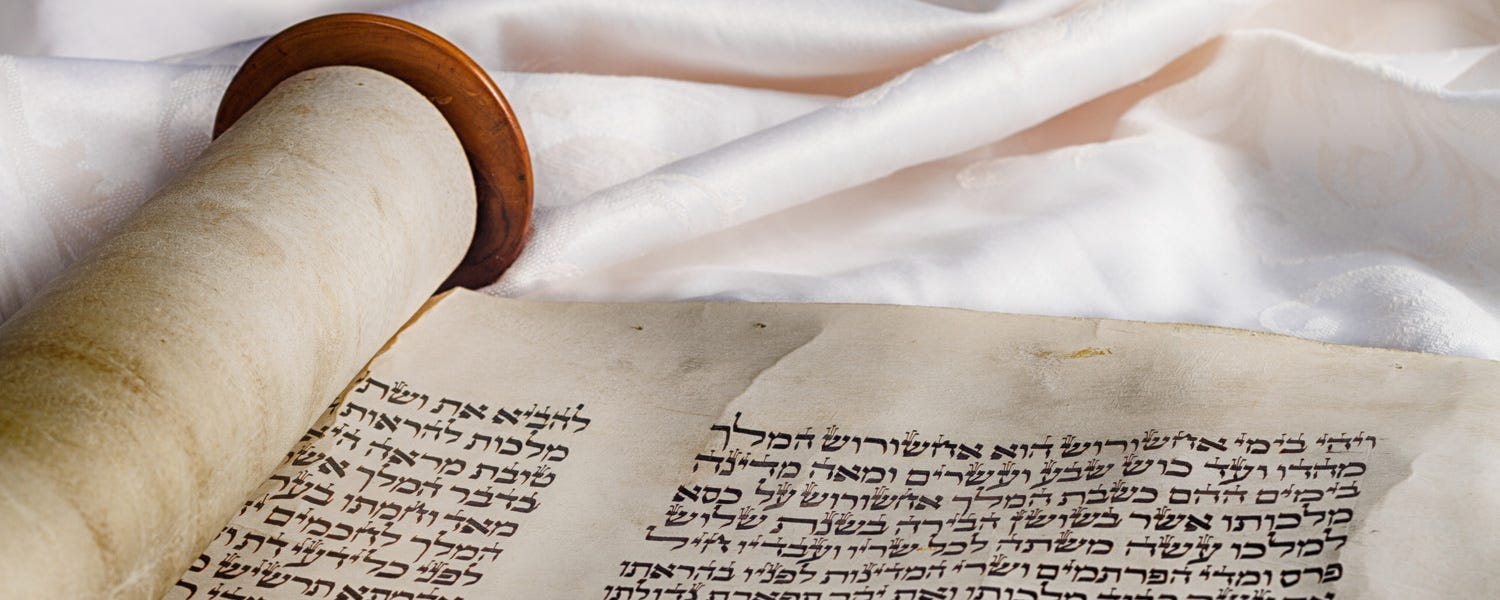 ויהי בימי אחשורוש הוא אחשורוש המלך
מהדו ועד כוש שבע ועשרים ומאה מדינה
בימים ההם כשבת המלך אחשורוש על כסא
מלכותו אשר בשושן הבירה בשנת שלוש
למלכו עשה משתה לכל שריו ועבדיו חיל
פרס ומדי הפרתמים ושרי המדינות לפניו בהראתו
כבוד מלכותו ואת יקר תפארת גדולתו
להביא את ושתי
מלכות להראות
טובת מראה
בדבר המלך
מאד וחמתו
המלך לחכמים
לפני כל ידעי דת
אדמתא תרשיש